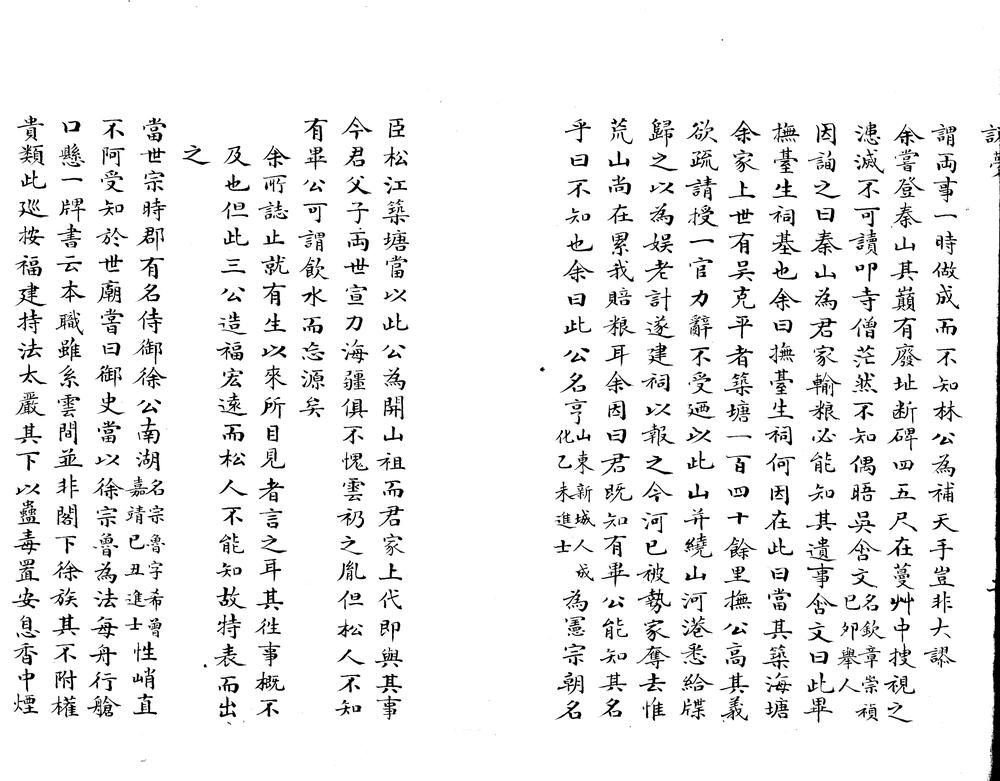 謂両事一時做成而不知林公為補天手豈非大謬
余嘗登秦山其巔有廢址断碑四五尺在蔓艸中搜視之
漶滅不可讀叩寺僧茫然不知偶晤吳舍文名欽章崇禎己夘舉人
因詢之曰秦山為君家輸粮必能知其遺事舍文曰此畢
撫䑓生祠基也余曰撫䑓生祠何因在此曰當其築海塘
余家上世有吳克平者築塘一百四十餘里撫公高其義
欲疏請授一官力辭不受廼以此山并繞山河港悉給牒
歸之以為娱老計遂建祠以報之今河已被勢家奪去惟
荒山尚在累我賠粮耳余因曰君既知有畢公能知其名
乎曰不知也余曰此公名亨山東新城人成化乙未進士為憲宗朝名
臣松江築塘當以此公為開山祖而君家上代即與其事
今君父子両世宣力海疆俱不愧雲礽之胤但松人不知
有畢公可謂飲水而忘源矣
余所誌止就有生以來所目見者言之耳其徃事概不
及也但此三公造福宏遠而松人不能知故特表而出
之
當世宗時郡有名侍御徐公南湖名宗魯字希曾嘉靖己丑進士性峭直
不阿受知於世廟嘗曰御史當以徐宗魯為法每舟行艙
口懸一牌書云本職雖系雲間並非閣下徐族其不附權
貴類此廵按福建持法太嚴其下以蠱毒置安息香中煙